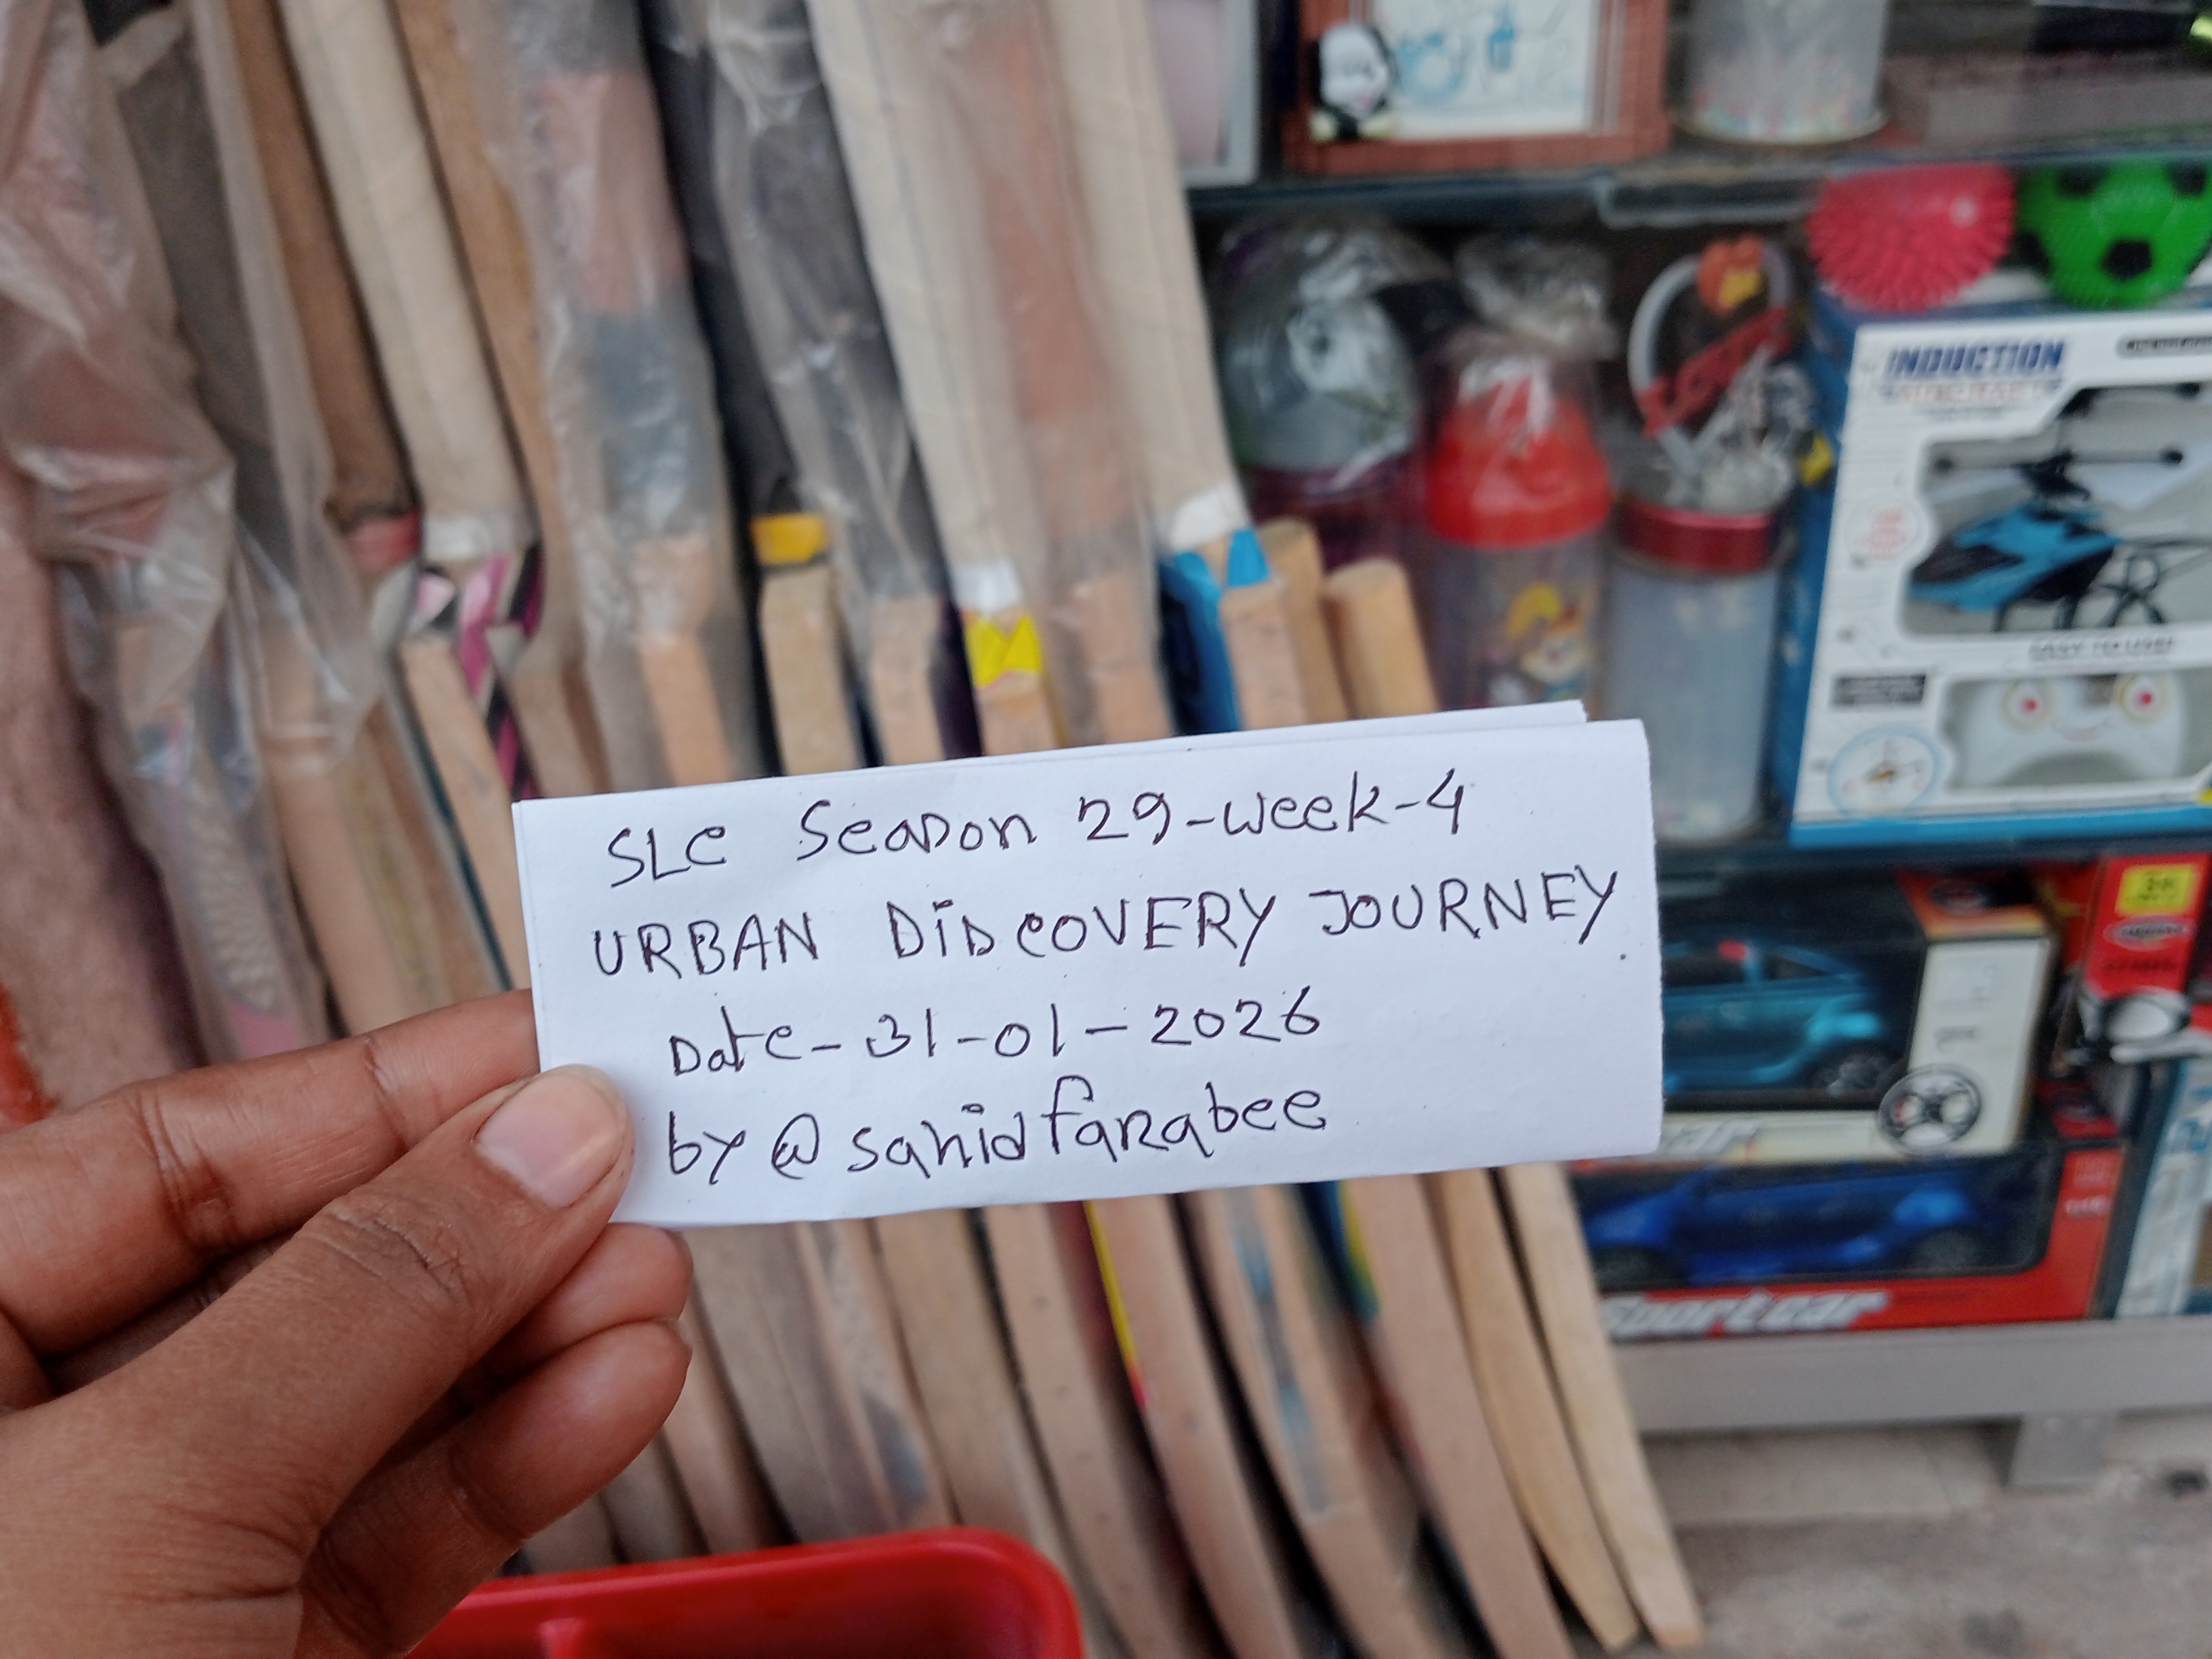 SLC Season 29-week-4
URBAN DiSCOVERY JOURNEY.
Date-31-01-2026
by @sahidfarabee
INDUCTION
EASY TO USE!
Sportcar